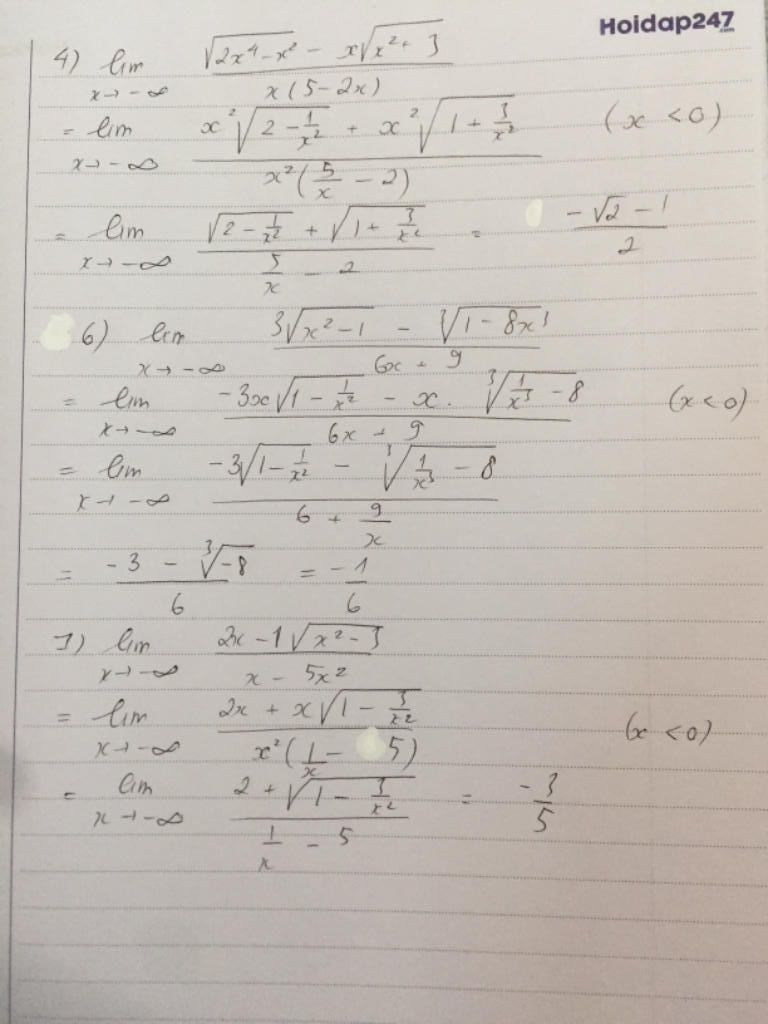 Hoidap247.com
4) lim x→-∞ (√(2x⁴-x²) - x√(x²+3)) / (x(5-2x))
= lim x→-∞ (x²√(2-1/x²) + x²√(1+3/x²)) / (x²(5/x - 2)) (x<0)
= lim x→-∞ (√(2-1/x²) + √(1+3/x²)) / (5/x - 2) = (-√2-1)/2
6) lim x→-∞ (3√(x²-1) - ∛(1-8x³)) / (6x+9)
= lim x→-∞ (-3x√(1-1/x²) - x.∛(1/x³-8)) / (6x+9) (x<0)
= lim x→-∞ (-3√(1-1/x²) - ∛(1/x³-8)) / (6+9/x)
= (-3-∛-8)/6 = -1/6
7) lim x→-∞ (2x-1√(x²-3)) / (x-5x²)
= lim x→-∞ (2x+x√(1-3/x²)) / (x²(1/x-5)) (x<0)
= lim x→-∞ (2+√(1-3/x²)) / (1/x-5) = -3/5